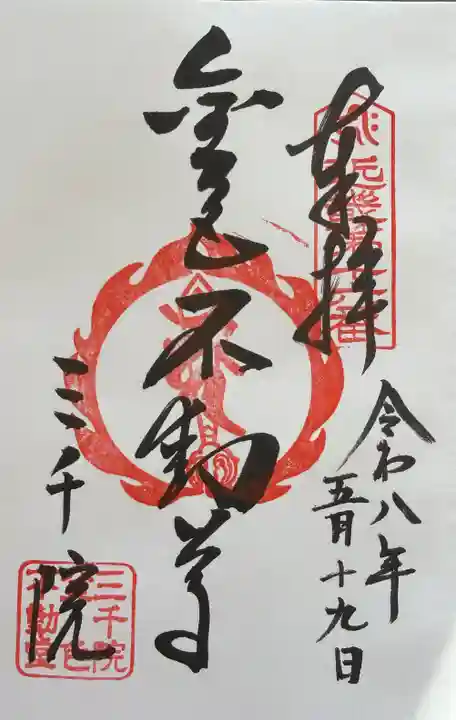 奉拝
令和八年
五月十九日
金色不動尊
三千院
三千院
金色
不動堂